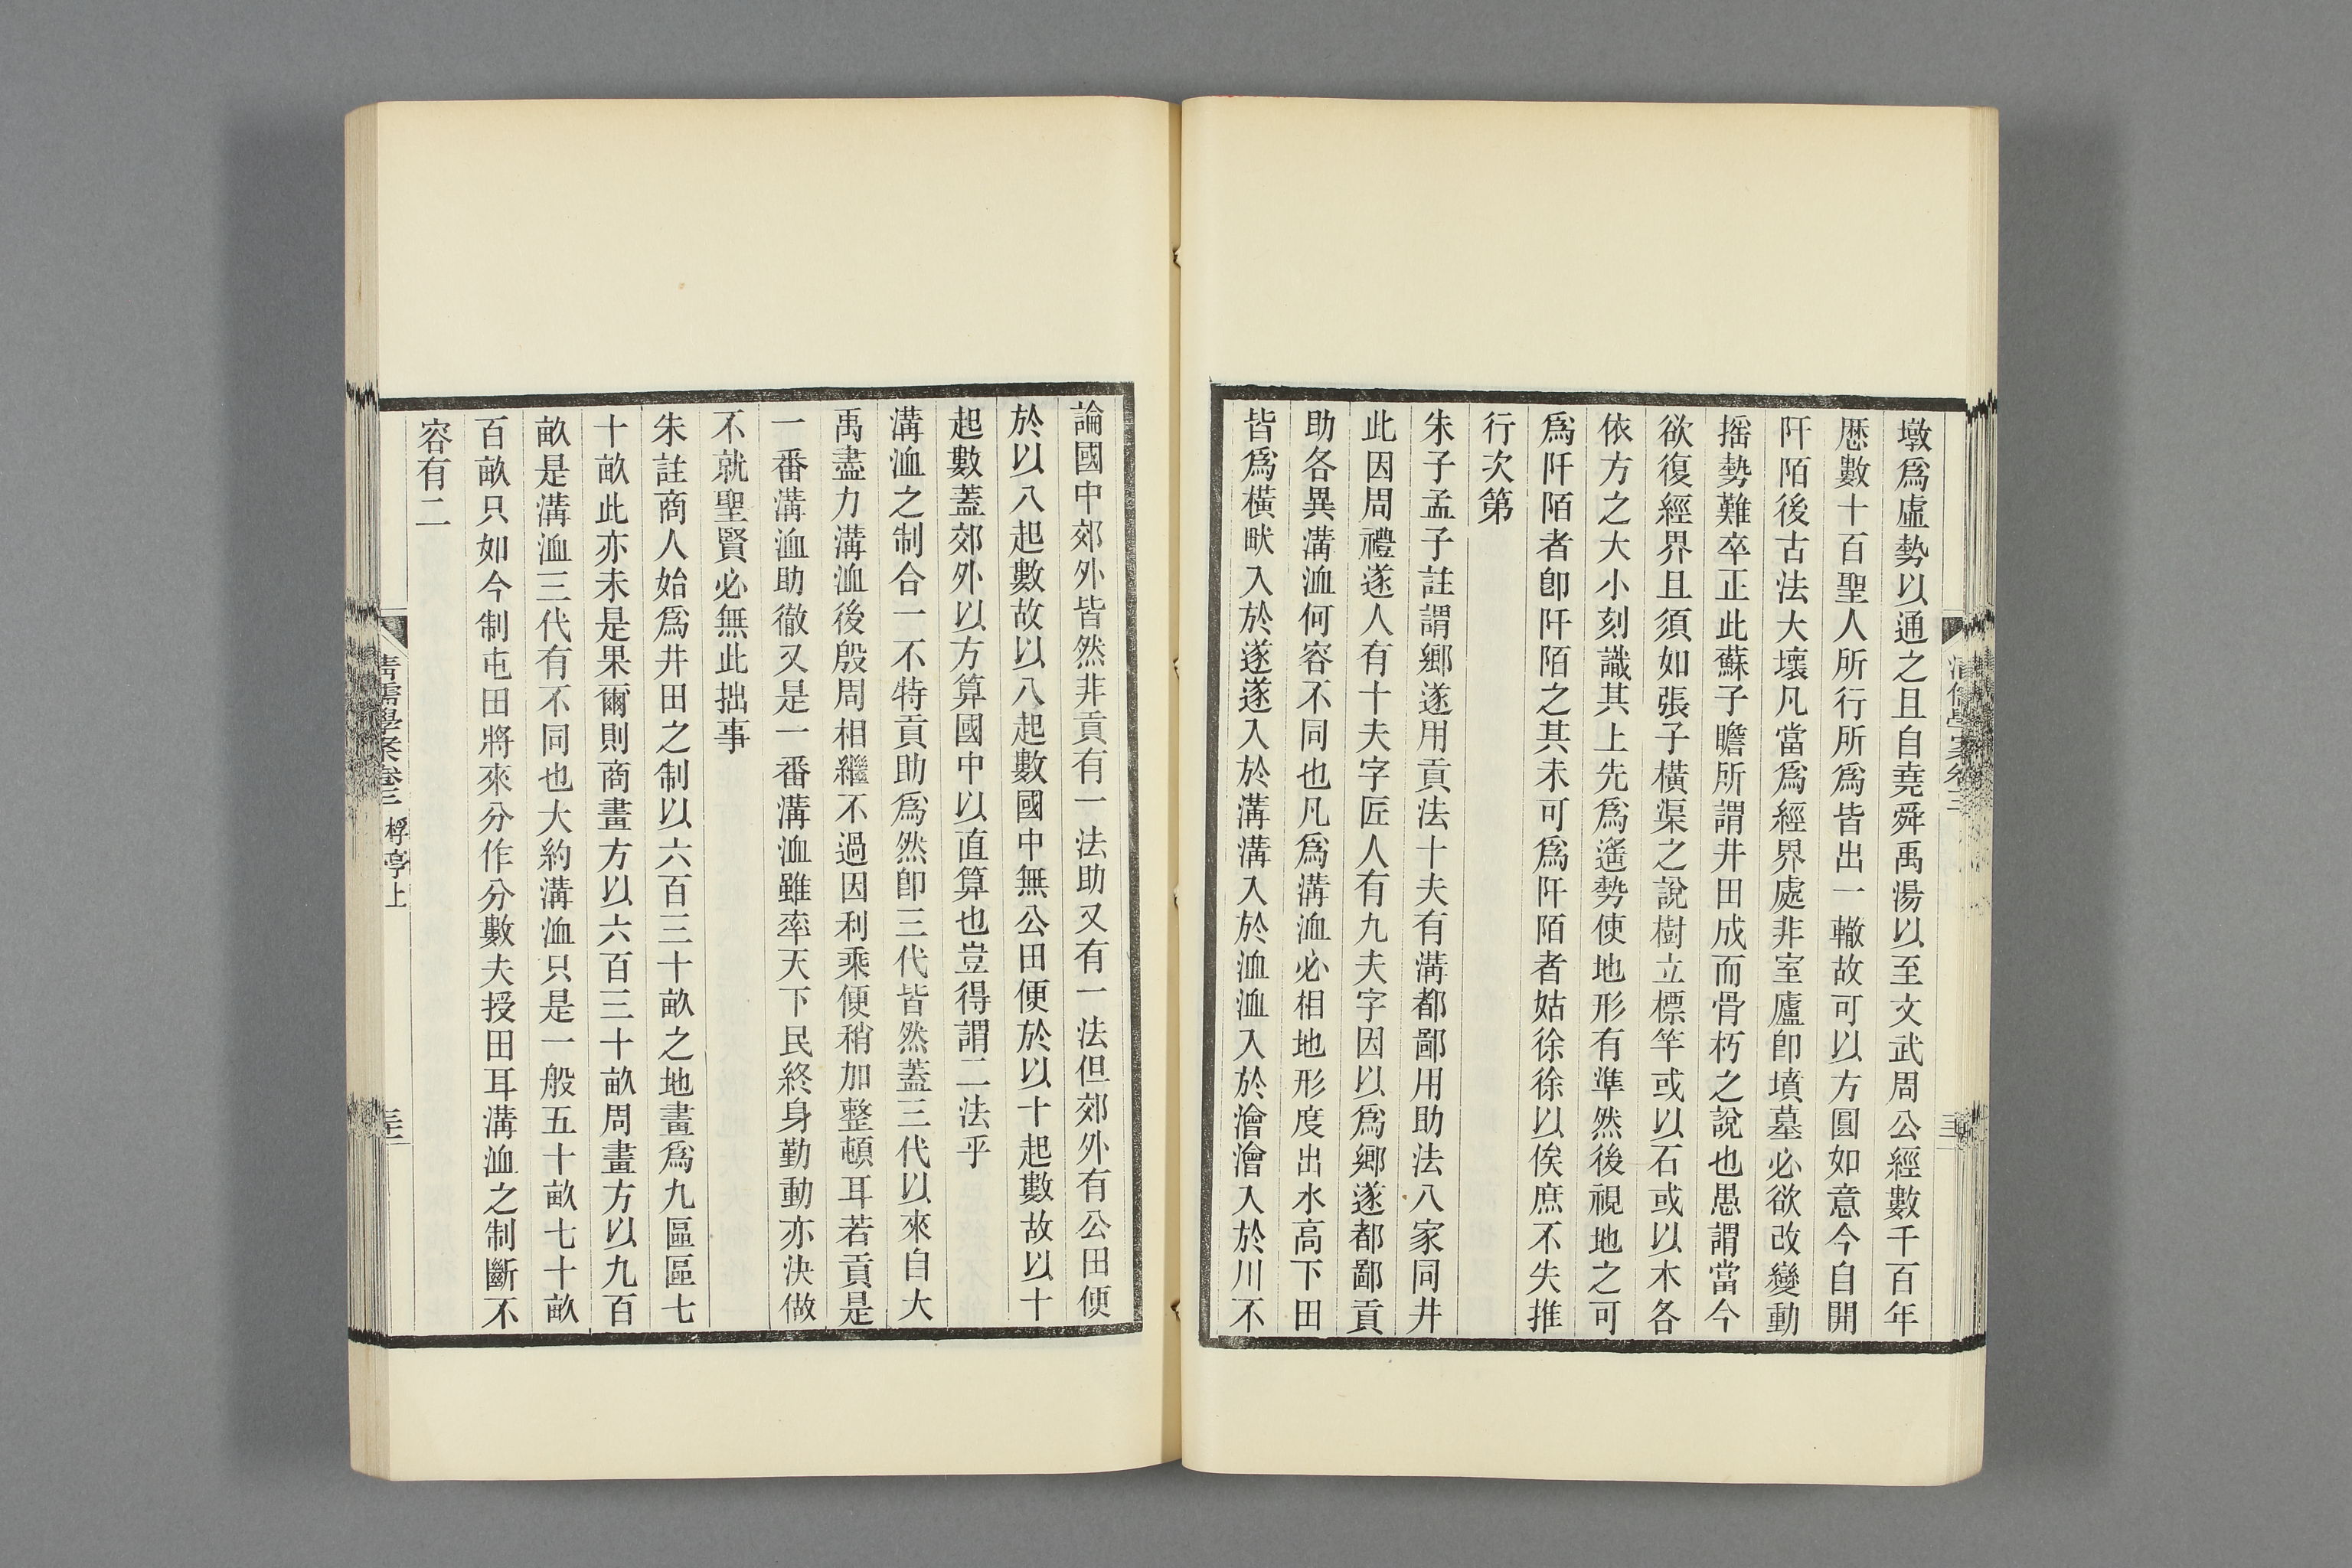 墩爲虛勢以通之且自堯舜禹湯以至文武周公經數千百年
歷數十百聖人所行所爲皆出一轍故可以方圓如意今自開
阡陌後古法大壞凡當爲經界處非室廬卽墳墓必欲改變動
搖勢難卒正此蘇子瞻所謂井田成而骨朽之說也愚謂當今
欲復經界且須如張子橫渠之說樹立標竿或以石或以木各
依方之大小刻識其上先爲遙勢使地形有準然後視地之可
爲阡陌者卽阡陌之其未可爲阡陌者姑徐徐以俟庶不失推
行次第
朱子孟子註謂鄉遂用貢法十夫有溝都鄙用助法八家同井
此因周禮遂人有十夫字匠人有九夫字因以爲鄉遂都鄙貢
助各異溝洫何容不同也凡爲溝洫必相地形度出水高下田
皆爲橫畎入於遂遂入於溝溝入於洫洫入於澮澮入於川不
論國中郊外皆然非貢有一法助又有一法但郊外有公田便
於以八起數故以八起數國中無公田便於以十起數故以十
起數蓋郊外以方算國中以直算也豈得謂二法乎
溝洫之制合一不特貢助爲然卽三代皆然蓋三代以來自大
禹盡力溝洫後殷周相繼不過因利乘便稍加整頓耳若貢是
一番溝洫助徹又是一番溝洫雖率天下民終身勤動亦決做
不就聖賢必無此拙事
朱註商人始爲井田之制以六百三十畝之地畫爲九區區七
十畝此亦未是果爾則商畫方以六百三十畝周畫方以九百
畝是溝洫三代有不同也大約溝洫只是一般五十畝七十畝
百畝只如今制屯田將來分作分數夫授田耳溝洫之制斷不
容有二
清儒學案卷三 桴亭上